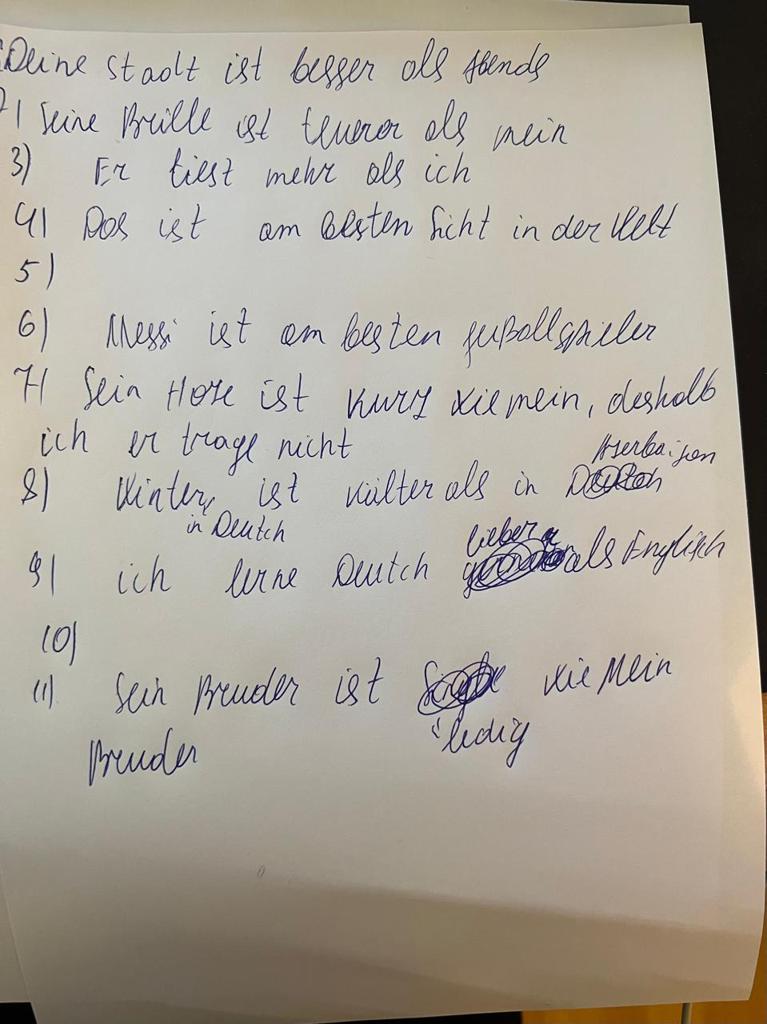 Deine Stadt ist besser als Abends
2) Seine Brille ist teurer als mein
3) Er liest mehr als ich
4) Das ist am besten Sicht in der Welt
5)
6) Messi ist am besten fußballspieler
7) Sein Hose ist kurz wie mein, deshalb
ich er trage nicht
Aserbaijan
8) Winter ist kälter als in
in Deutch
lieber
9) ich lerne Deutch als Englisch
10)
11) Sein Bruder ist wie Mein
ledig
Bruder